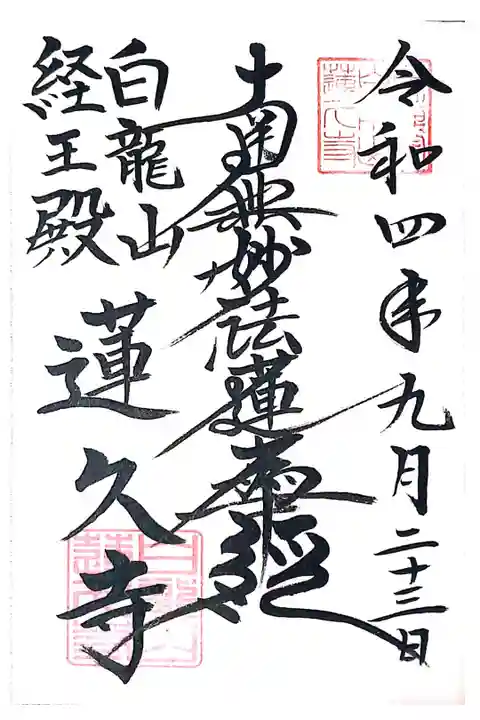 令和四年九月二十三日
南無妙法蓮華經
白龍山
経王殿
蓮久寺